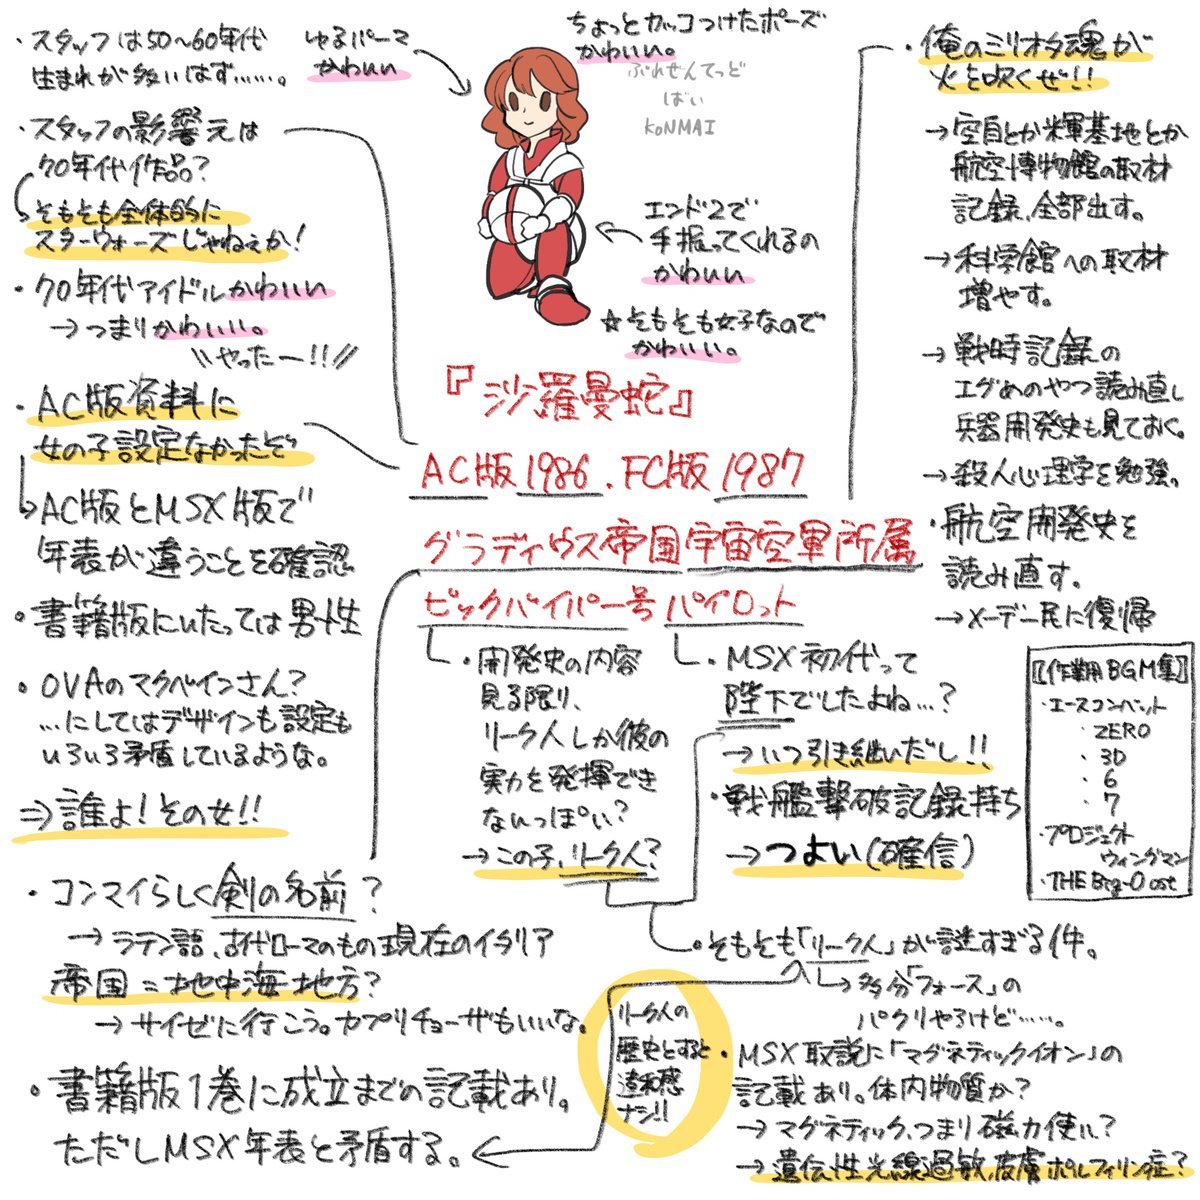 ・スタッフは50〜60年代
生まれが多いはず……。
・スタッフの影響元は
70年代作品?
→そもそも全体的に
スターウォーズじゃねぇか!
・70年代アイドルかわいい
→つまりかわいい。
\\やったー!!//
・AC版資料に
女の子設定なかったぞ
→AC版とMSX版で
年表が違うことを確認
・書籍版にいたっては男性
・OVAのマクベインさん?
…にしてはデザインも設定も
いろいろ矛盾しているような。
⇒誰よ!その女!!
ゆるパーマ
かわいい
ちょっとカッコつけたポーズ
かわいい。
ぷれぜんてっど
ばい
KONMAI
エンド2で
手振ってくれるの
かわいい
☆そもそも女子なので
かわいい。
『沙羅曼蛇』
AC版1986.FC版1987
グラディウス帝国宇宙空軍所属
ビックバイパー号パイロット
・俺のミリオタ魂が
火を吹くぜ!!
→空自とか米軍基地とか
航空博物館の取材
記録、全部出す。
→科学館への取材
増やす。
→戦時記録の
エグめのやつ読み直し
兵器開発史も見ておく。
→殺人心理学を勉強。
・航空開発史を
読み直す。
→メーデー民に復帰
・開発史の内容
見る限り、
リーク人しか彼の
実力を発揮でき
ないっぽい?
→この子、リーク人?
・MSX初代って
陛下でしたよね…?
→いつ引き継いだし!!
・戦艦撃破記録持ち
→つよい(確信)
【作業用BGM集】
・エースコンバット
・ZERO
・3D
・6
・7
・プロジェクト
ウィングマン
・THE Big-O ost
・コンマイらしく剣の名前?
→ラテン語、古代ローマのもの現在のイタリア
帝国=地中海地方?
→サイゼに行こう。カプリチョーザもいいな。
・書籍版1巻に成立までの記載あり。
ただしMSX年表と矛盾する。
リーク人の
歴史とすると
違和感
ナシ!!
・そもそも「リーク人」が謎すぎる件。
→多分「フォース」の
パクリやろけど……。
・MSX取説に「マグネティックイオン」の
記載あり。体内物質か?
→マグネティック、つまり磁力使い?
→遺伝性光線過敏、皮膚ポルフィリン症?